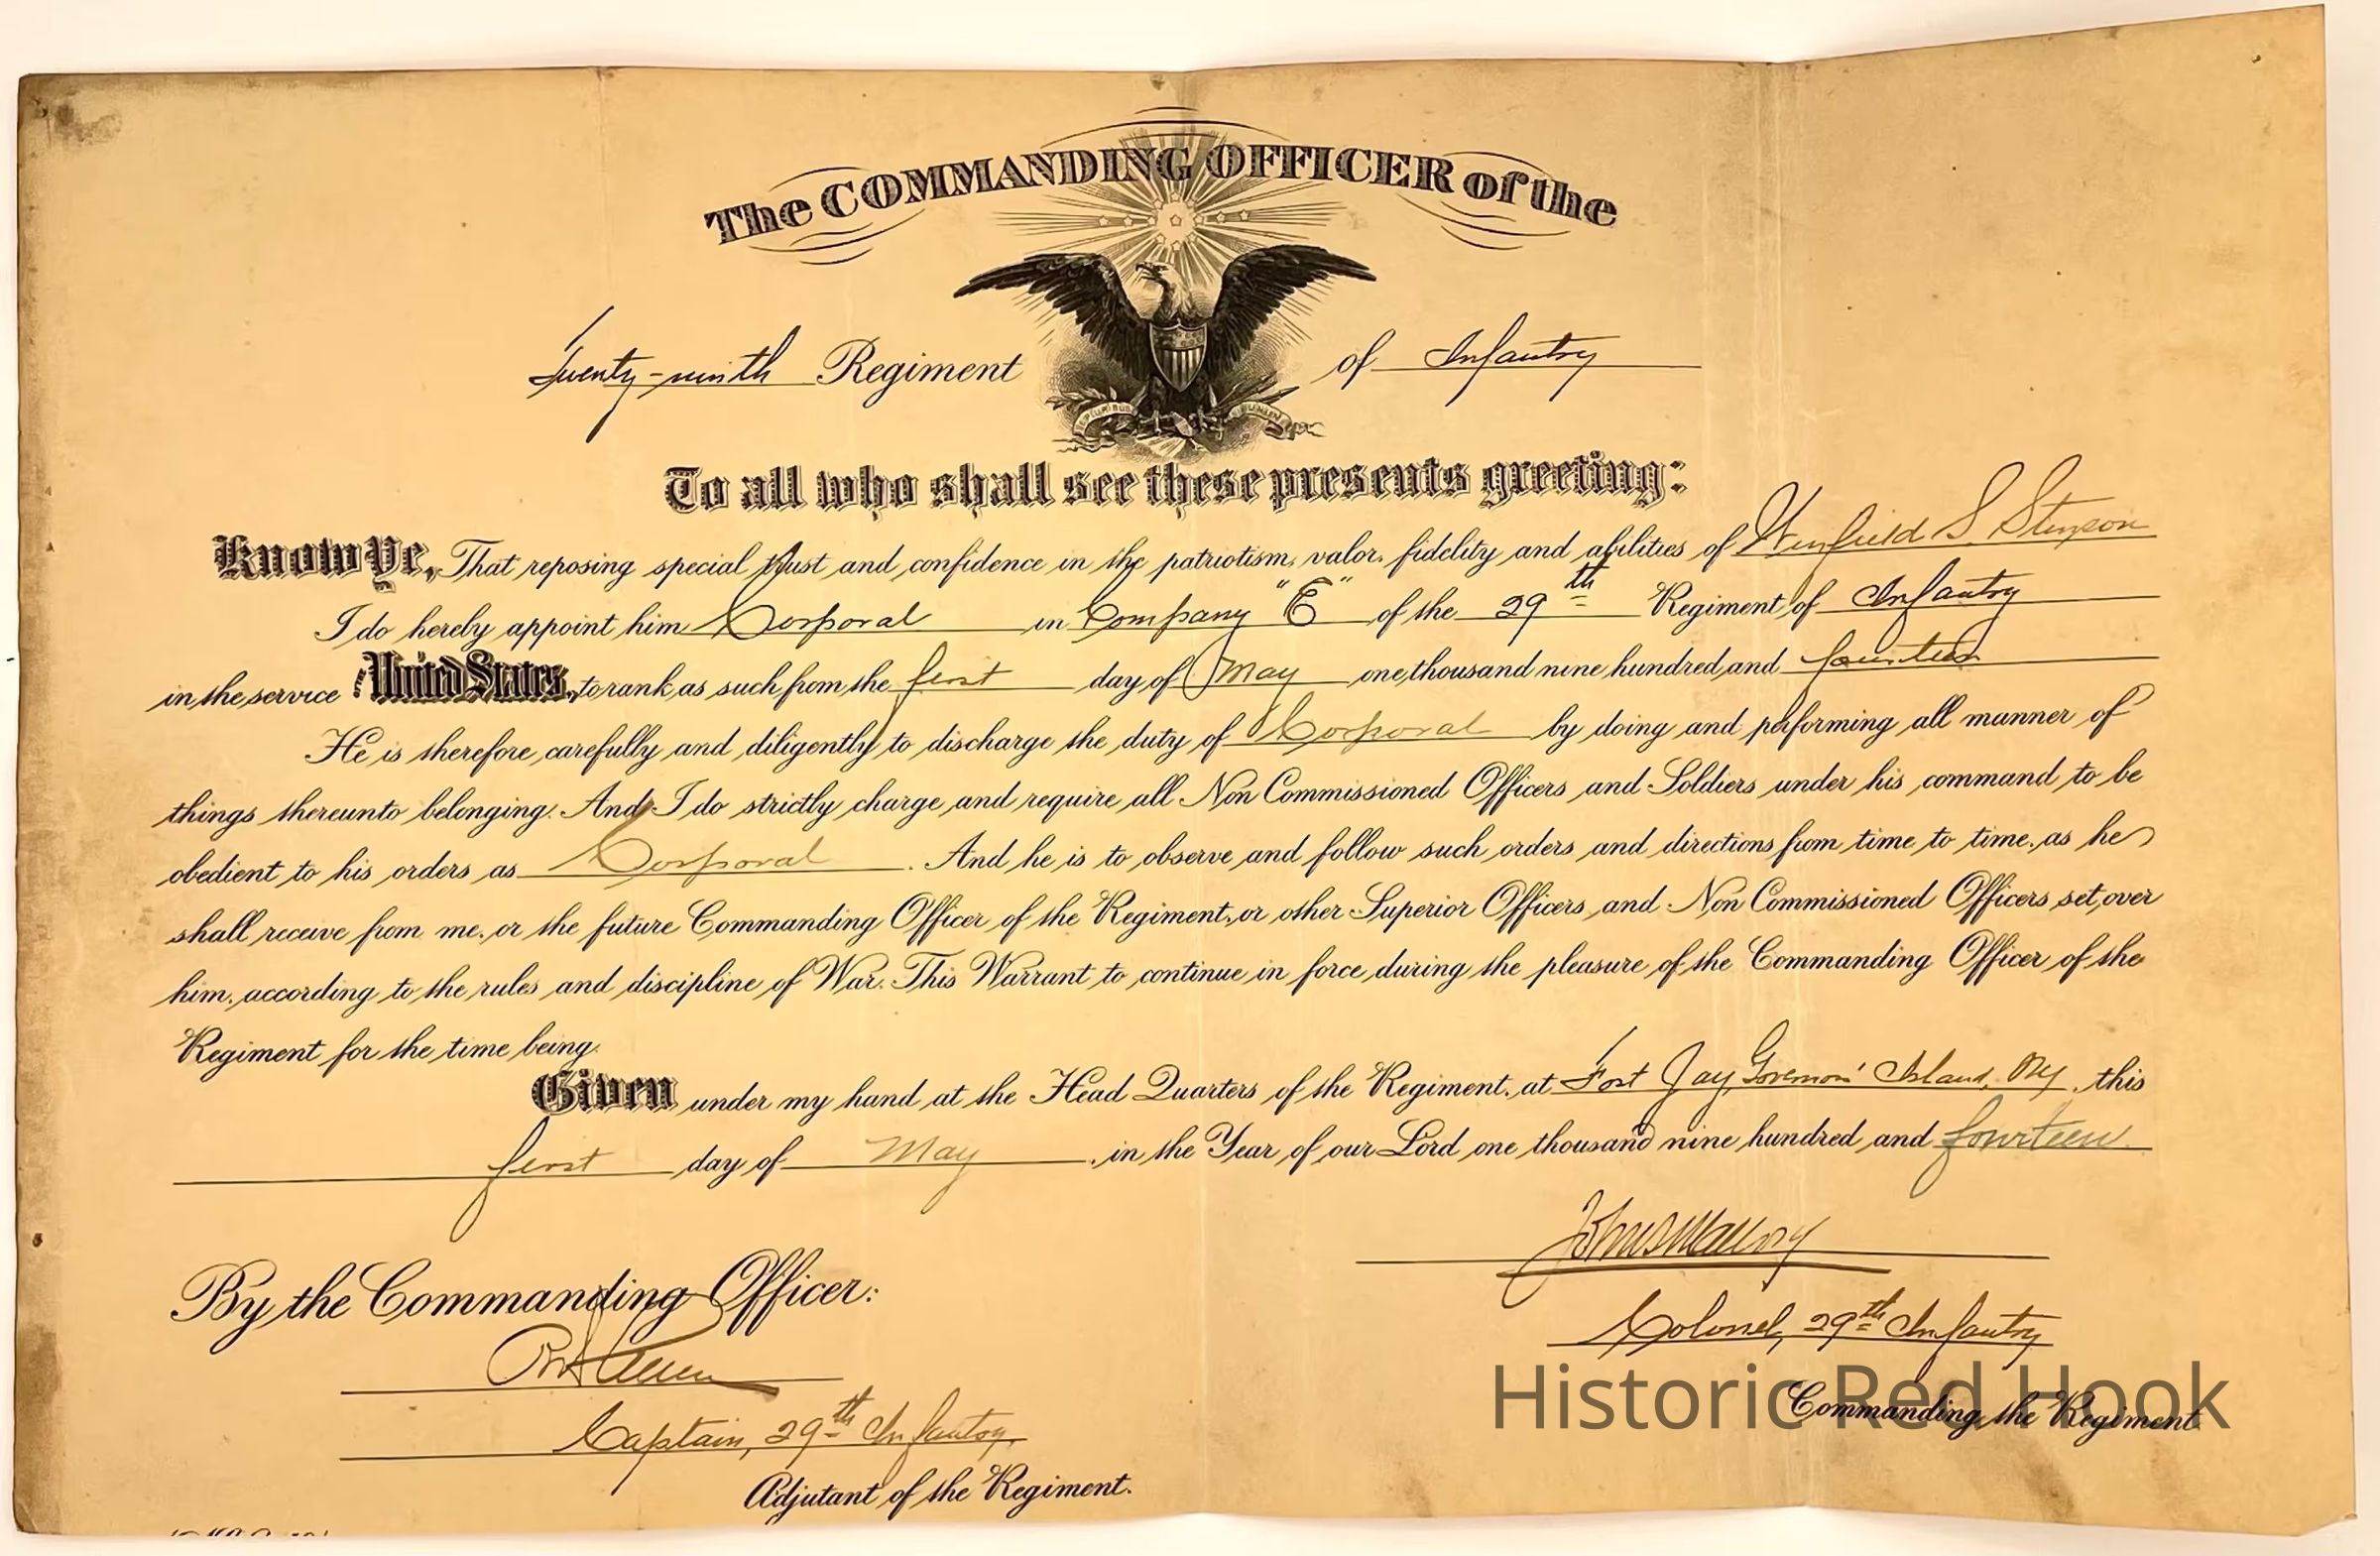 The COMMANDING OFFICER of the
Twenty-ninth Regiment of Infantry
E PLURIBUS UNUM
To all who shall see these presents greeting:
Know Ye, That reposing special trust and confidence in the patriotism, valor, fidelity and abilities of Winfield S. Stimpson
I do hereby appoint him Corporal in Company "E" of the 29th Regiment of Infantry
in the service of the United States, to rank as such from the first day of May one thousand nine hundred and fourteen
He is therefore carefully and diligently to discharge the duty of Corporal by doing and performing all manner of
things thereunto belonging. And I do strictly charge and require all Non Commissioned Officers and Soldiers under his command to be
obedient to his orders as Corporal. And he is to observe and follow such orders and directions from time to time, as he
shall receive from me, or the future Commanding Officer of the Regiment, or other Superior Officers, and Non Commissioned Officers set over
him, according to the rules and discipline of War. This Warrant to continue in force during the pleasure of the Commanding Officer of the
Regiment for the time being.
Given under my hand at the Head Quarters of the Regiment, at Fort Jay, Governors' Island, NY, this
first day of May, in the Year of our Lord one thousand nine hundred and fourteen.
John S Mallory
Colonel, 29th Infantry
Commanding the Regiment
By the Commanding Officer:
Captain, 29th Infantry,
Adjutant of the Regiment.
Historic Red Hook